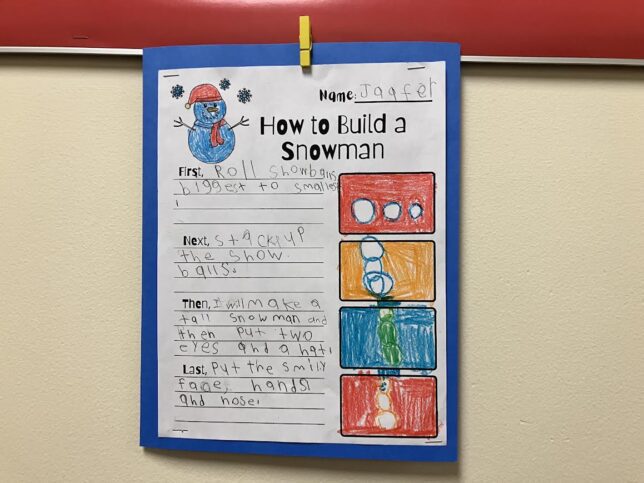 Name: Jaafer
How to Build a
Snowman
First, Roll snowballs
biggest to smallest
Next, stack up
the snow
balls.
Then, I will make a
tall snowman and
then put two
eyes and a hat.
Last, Put the smily
face, hands
and nose.